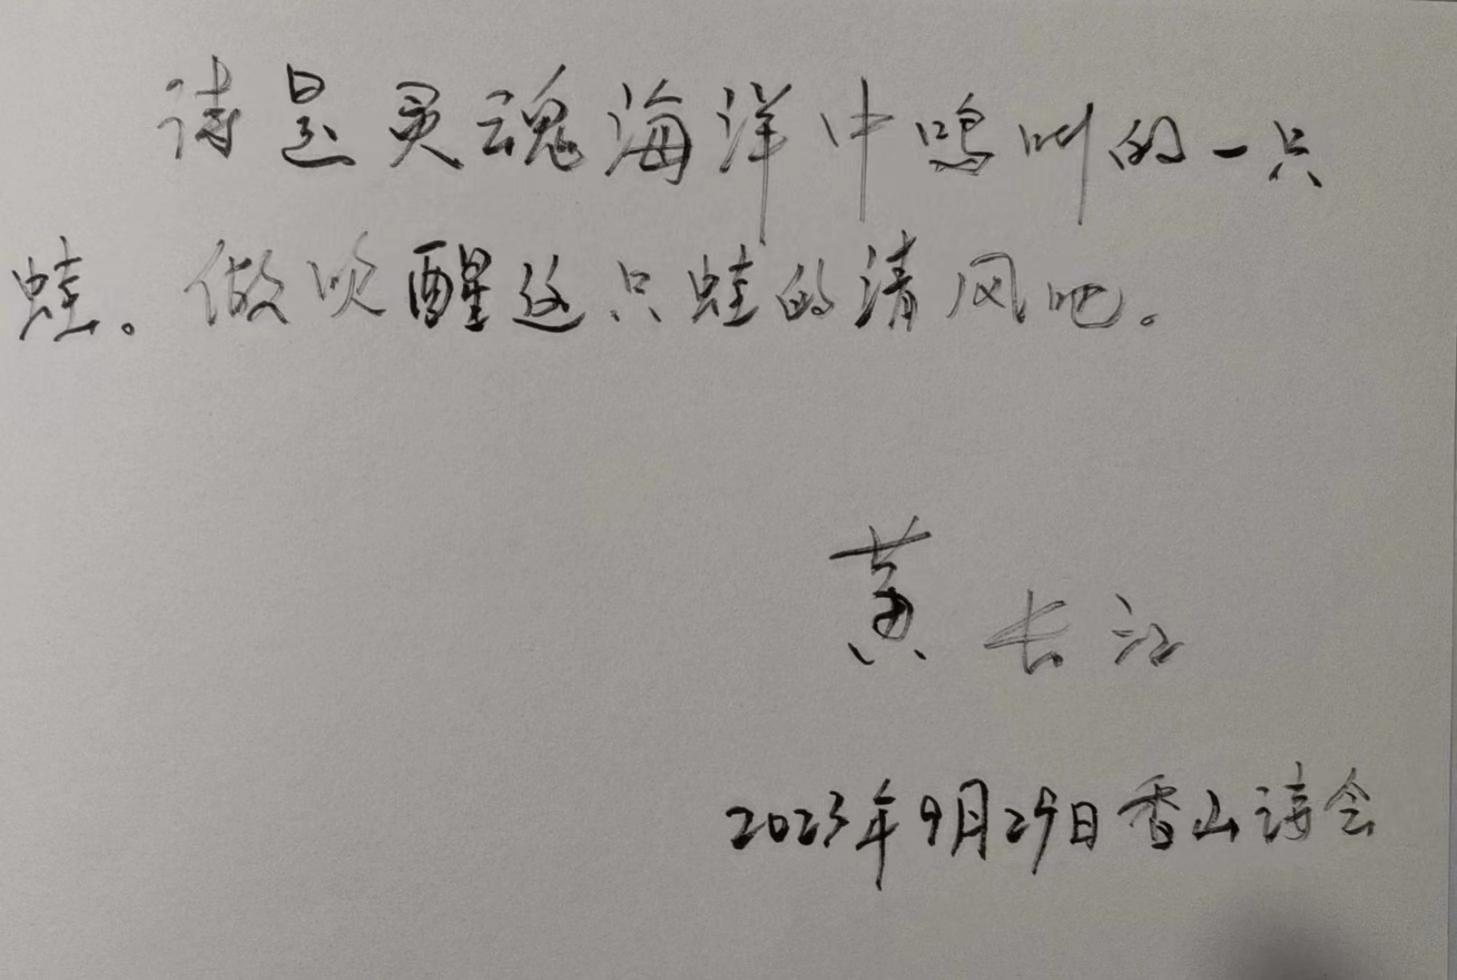 诗是灵魂海洋中鸣叫的一只
蛙。做吹醒这只蛙的清风吧。
黄长江
2023年9月29日香山诗会